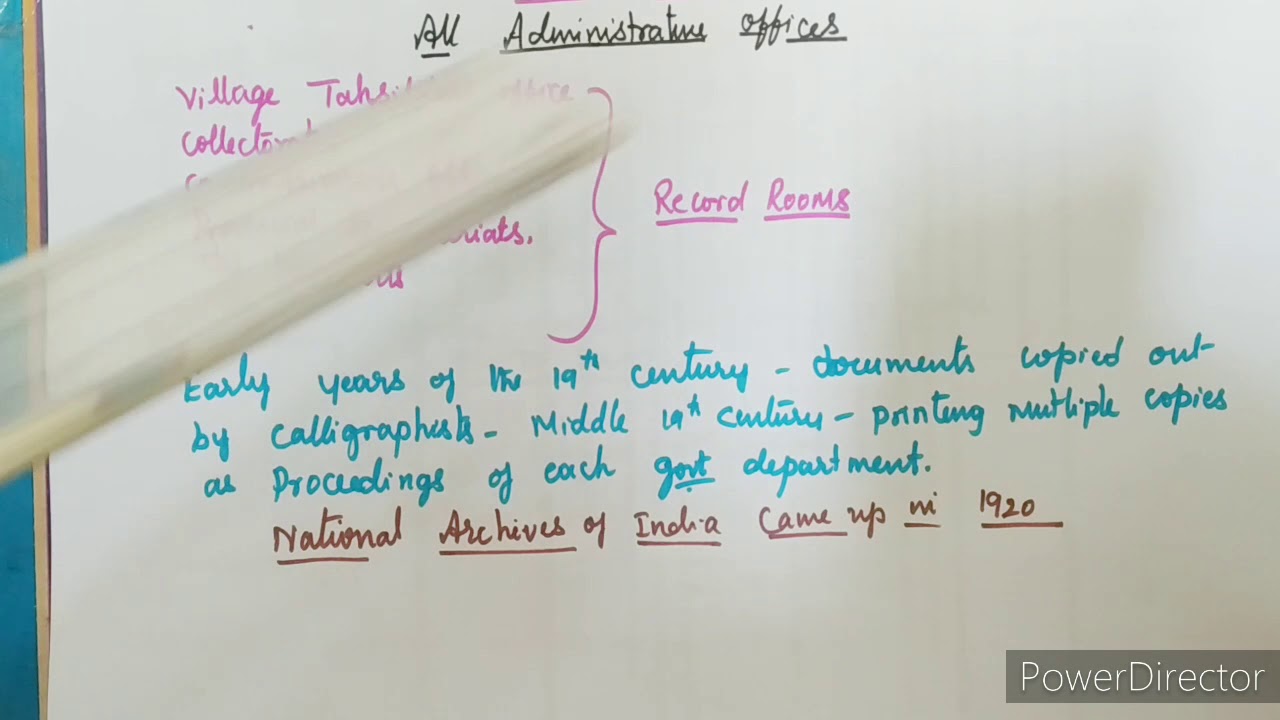 All Administrative offices
Village
Record Rooms
Early years of the 19th century - documents copied out
by calligraphists - Middle 19th century - printing multiple copies
as Proceedings of each govt department.
National Archives of India Came up in 1920
PowerDirector